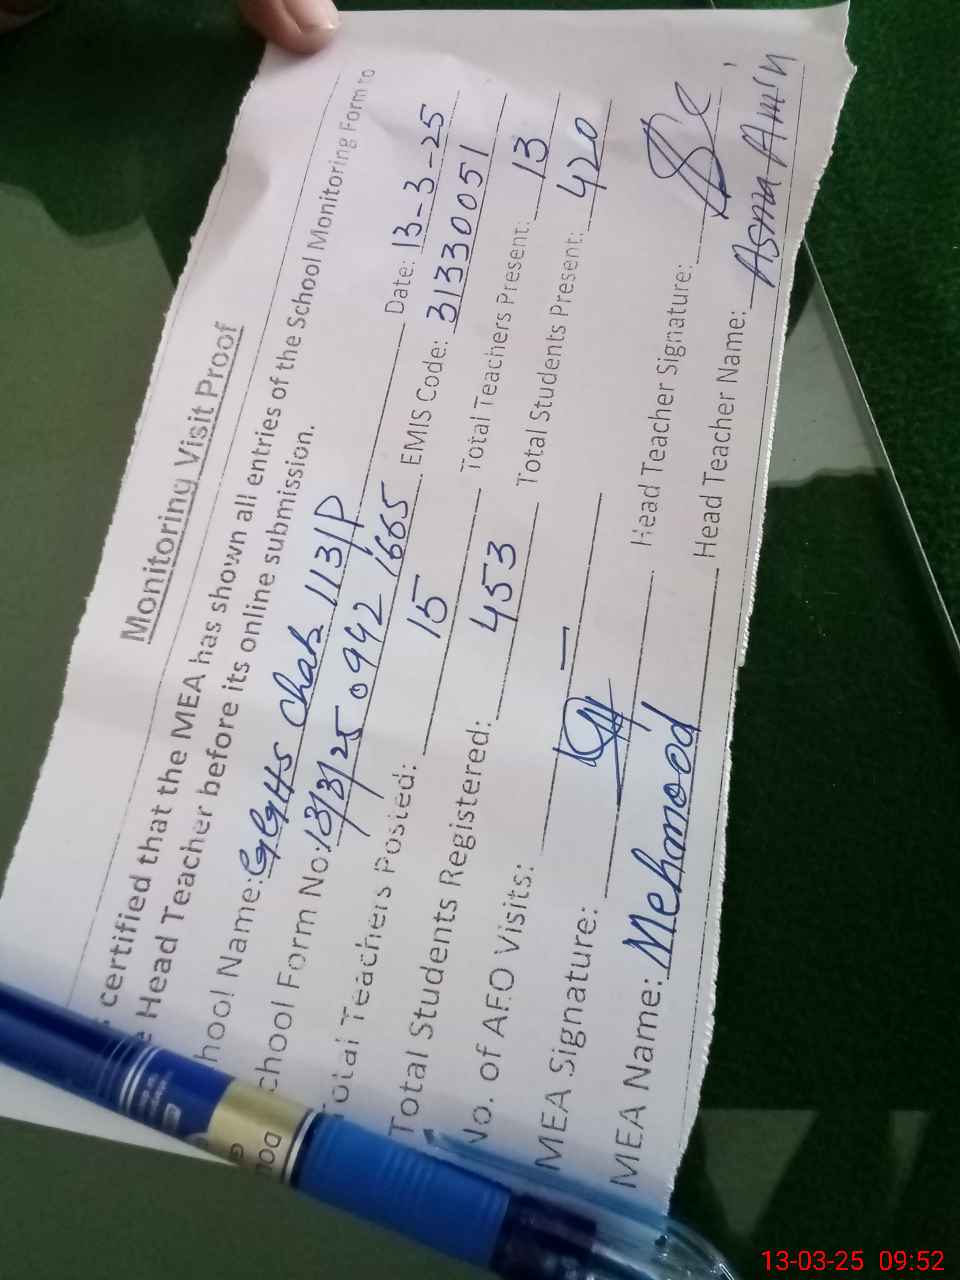 Monitoring Visit Proof
certified that the MEA has shown all entries of the School Monitoring Form to
Head Teacher before its online submission.
hool Name: GGHS Chak 113/P Date: 13-3-25
chool Form No: 13/3/25 0942 1665 EMIS Code: 31330051
Total Teachers Posted: 15 Total Teachers Present: 13
Total Students Registered: 453 Total Students Present: 420
No. of AEO Visits: —
MEA Signature: Head Teacher Signature:
MEA Name: Mehmood Head Teacher Name: Asma Amin
13-03-25 09:52